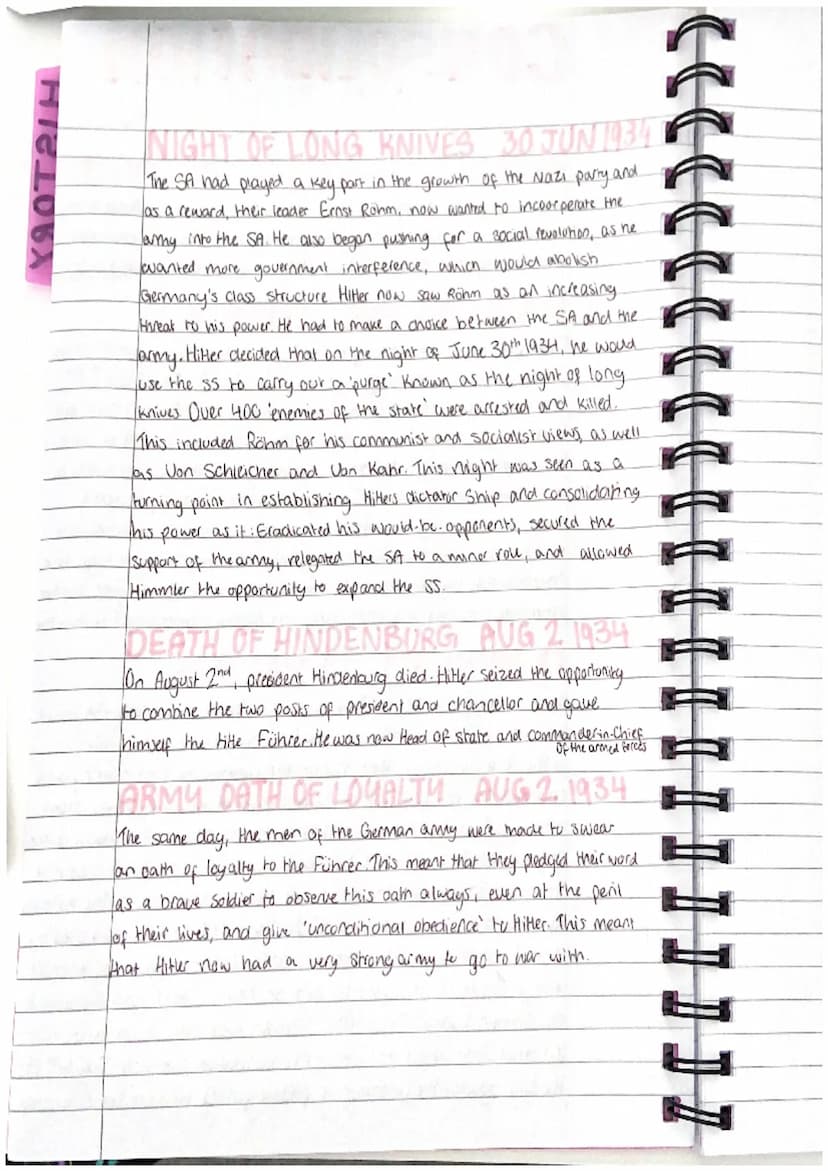 HISTORY
NIGHT OF LONG KNIVES 30 JUN 1934
The SA had played a key part in the growth of the Nazi party and
as a reward, their leader Ernst Röhm, now wanted to incoorperate the
army into the SA. He also began pushing for a social revolution, as he
wanted more government interference, which would abolish
Germany's class structure Hitler now saw Röhm as an increasing
threat to his power. He had to make a choice between the SA and the
army. Hitler decided that on the night of June 30th 1934, he would
use the SS to carry out a 'purge' known as the night of long
knives Over 400 'enemies of the state' were arrested and killed.
This included Röhm for his communist and socialist views, as well
as Von Schleicher and Von Kahr. This night was seen as a
turning point in establishing Hitlers dictator ship and consolidating
his power as it: Eradicated his would-be-opponents, secured the
support of the army, relegated the SA to a minor role, and allowed
Himmler the opportunity to expand the SS.
DEATH OF HINDENBURG AUG 2 1934
On August 2nd, president Hindenburg died. Hitler seized the opportunity
to combine the two posts of president and chancellor and gave
himself the title Führer. He was now Head of state and commander-in-Chief
of the armed forces
ARMY OATH OF LOYALTY AUG 2 1934
The same day, the men of the German army were made to swear
an oath of loyalty to the Führer. This meant that they pledged their word
as a brave soldier to observe this oath always, even at the peril
of their lives, and give 'unconditional obedience' to Hitler. This meant
that Hitler now had a very strong army to go to war with.